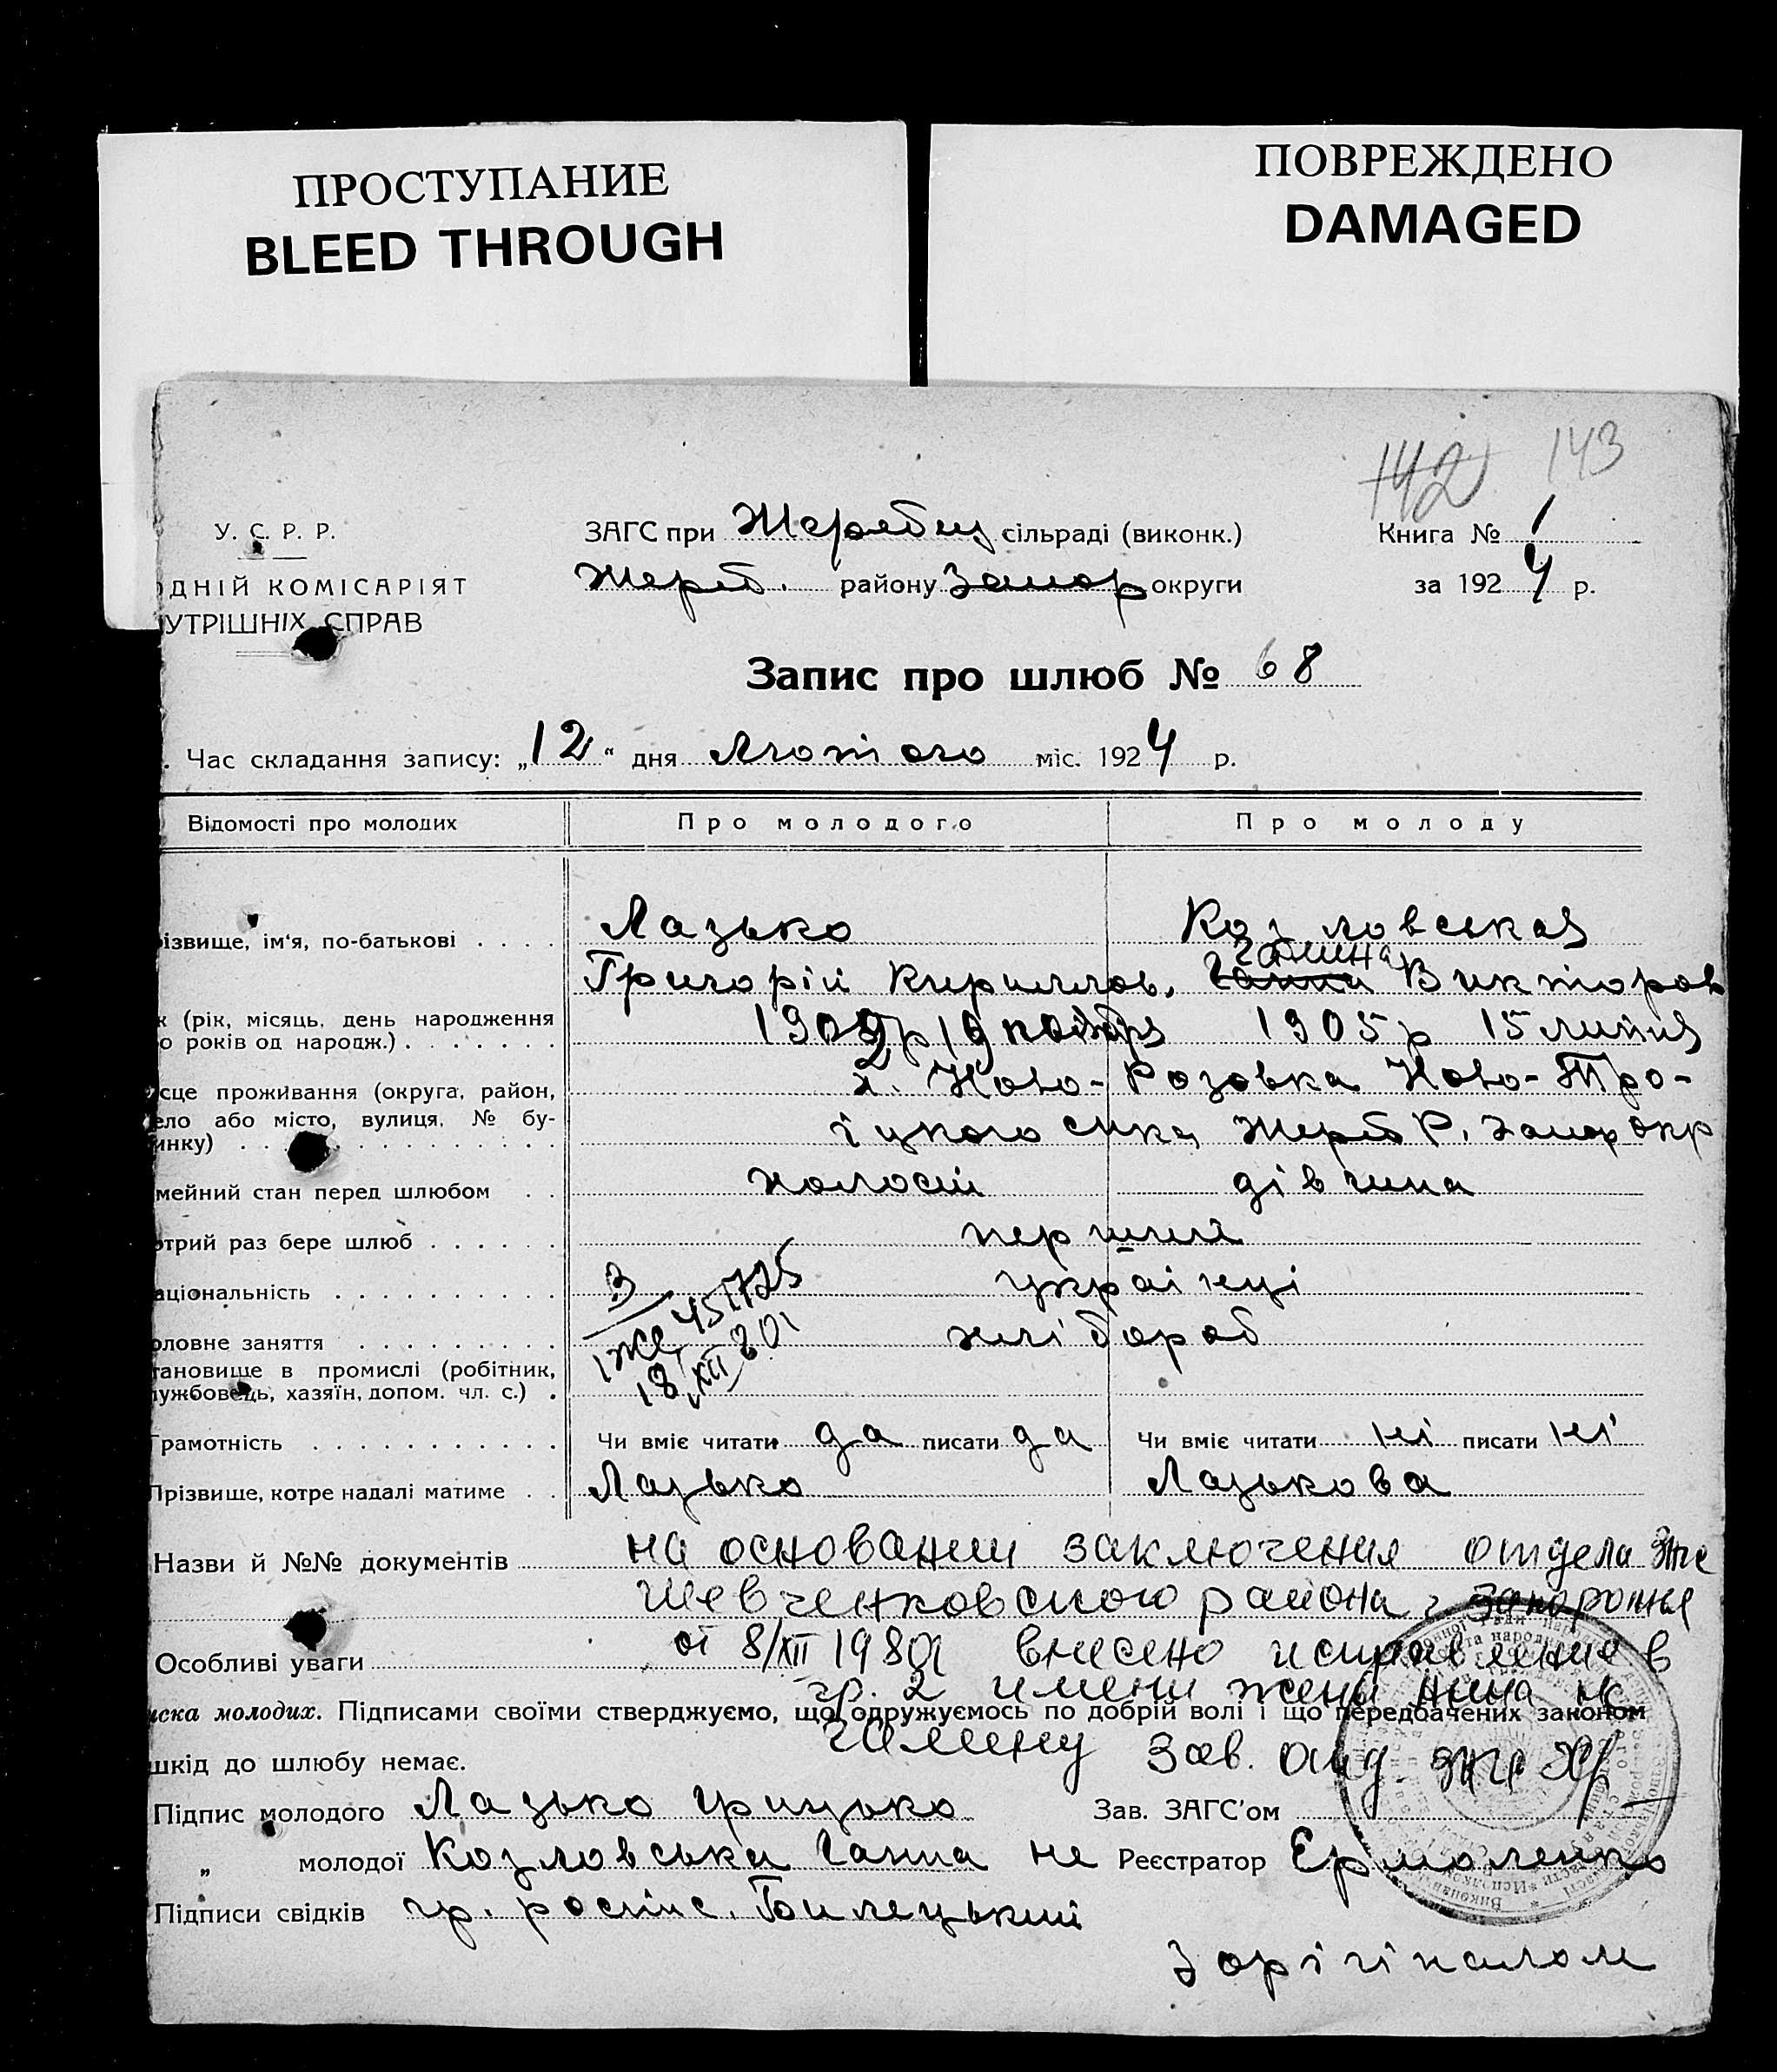 ПРОСТУПАНИЕ
BLEED THROUGH
ПОВРЕЖДЕНО
DAMAGED
142 143
У. С. Р. Р.
ОДНІЙ КОМІСАРІЯТ
УТРІШНІХ СПРАВ
ЗАГС при Жеребец сільраді (виконк.)
Жереб. району Запор округи
Книга № 1
за 1924 р.
Запис про шлюб № 68
Час складання запису: „12“ дня Лютого міс. 1924 р.
Відомості про молодих Про молодого Про молоду
ізвище, ім'я, по-батькові . . . . Лазько Козловськая
Галина
Григорій Кириллов. Ганна Викторов
к (рік, місяць, день народження
о років од народж.) . . . . . . . 1902р 19 ноября 1905 р 15 липня
сце проживання (округа, район, х. Ново-Розовка Ново-Тро-
ело або місто, вулиця, № бу-
инку) . . . іцкого Жереб Р. Запор окр
мейний стан перед шлюбом . . холостй дівчина
отрий раз бере шлюб . . . . . . перший
аціональність . . . . . . . . . . українці
оловне заняття . . . . . . . . . хлібороб
тановище в промислі (робітник,
лужбовець, хазяїн, допом. чл. с.) .
Грамотність . . . . . . . . . . . Чи вміє читати да писати да Чи вміє читати ні писати ні
Прізвище, котре надалі матиме . . Лазько Лазькова
Назви й №№ документів на основании заключения отдела загс
Шевченковского района г Запорожья
Особливі уваги от 8/XII 1980г внесено исправление в
гр. 2 имени жены Анна на
иска молодих. Підписами своїми стверджуємо, що одружуємось по добрій волі і що передбачених законом
Галину Зав. отд. загс
шкід до шлюбу немає.
Підпис молодого Лазько Грицько Зав. ЗАГС'ом
„ молодої Козловська Ганна не Реєстратор Ермоленко
Підписи свідків гр. роспис. Билецький
З орігіналом